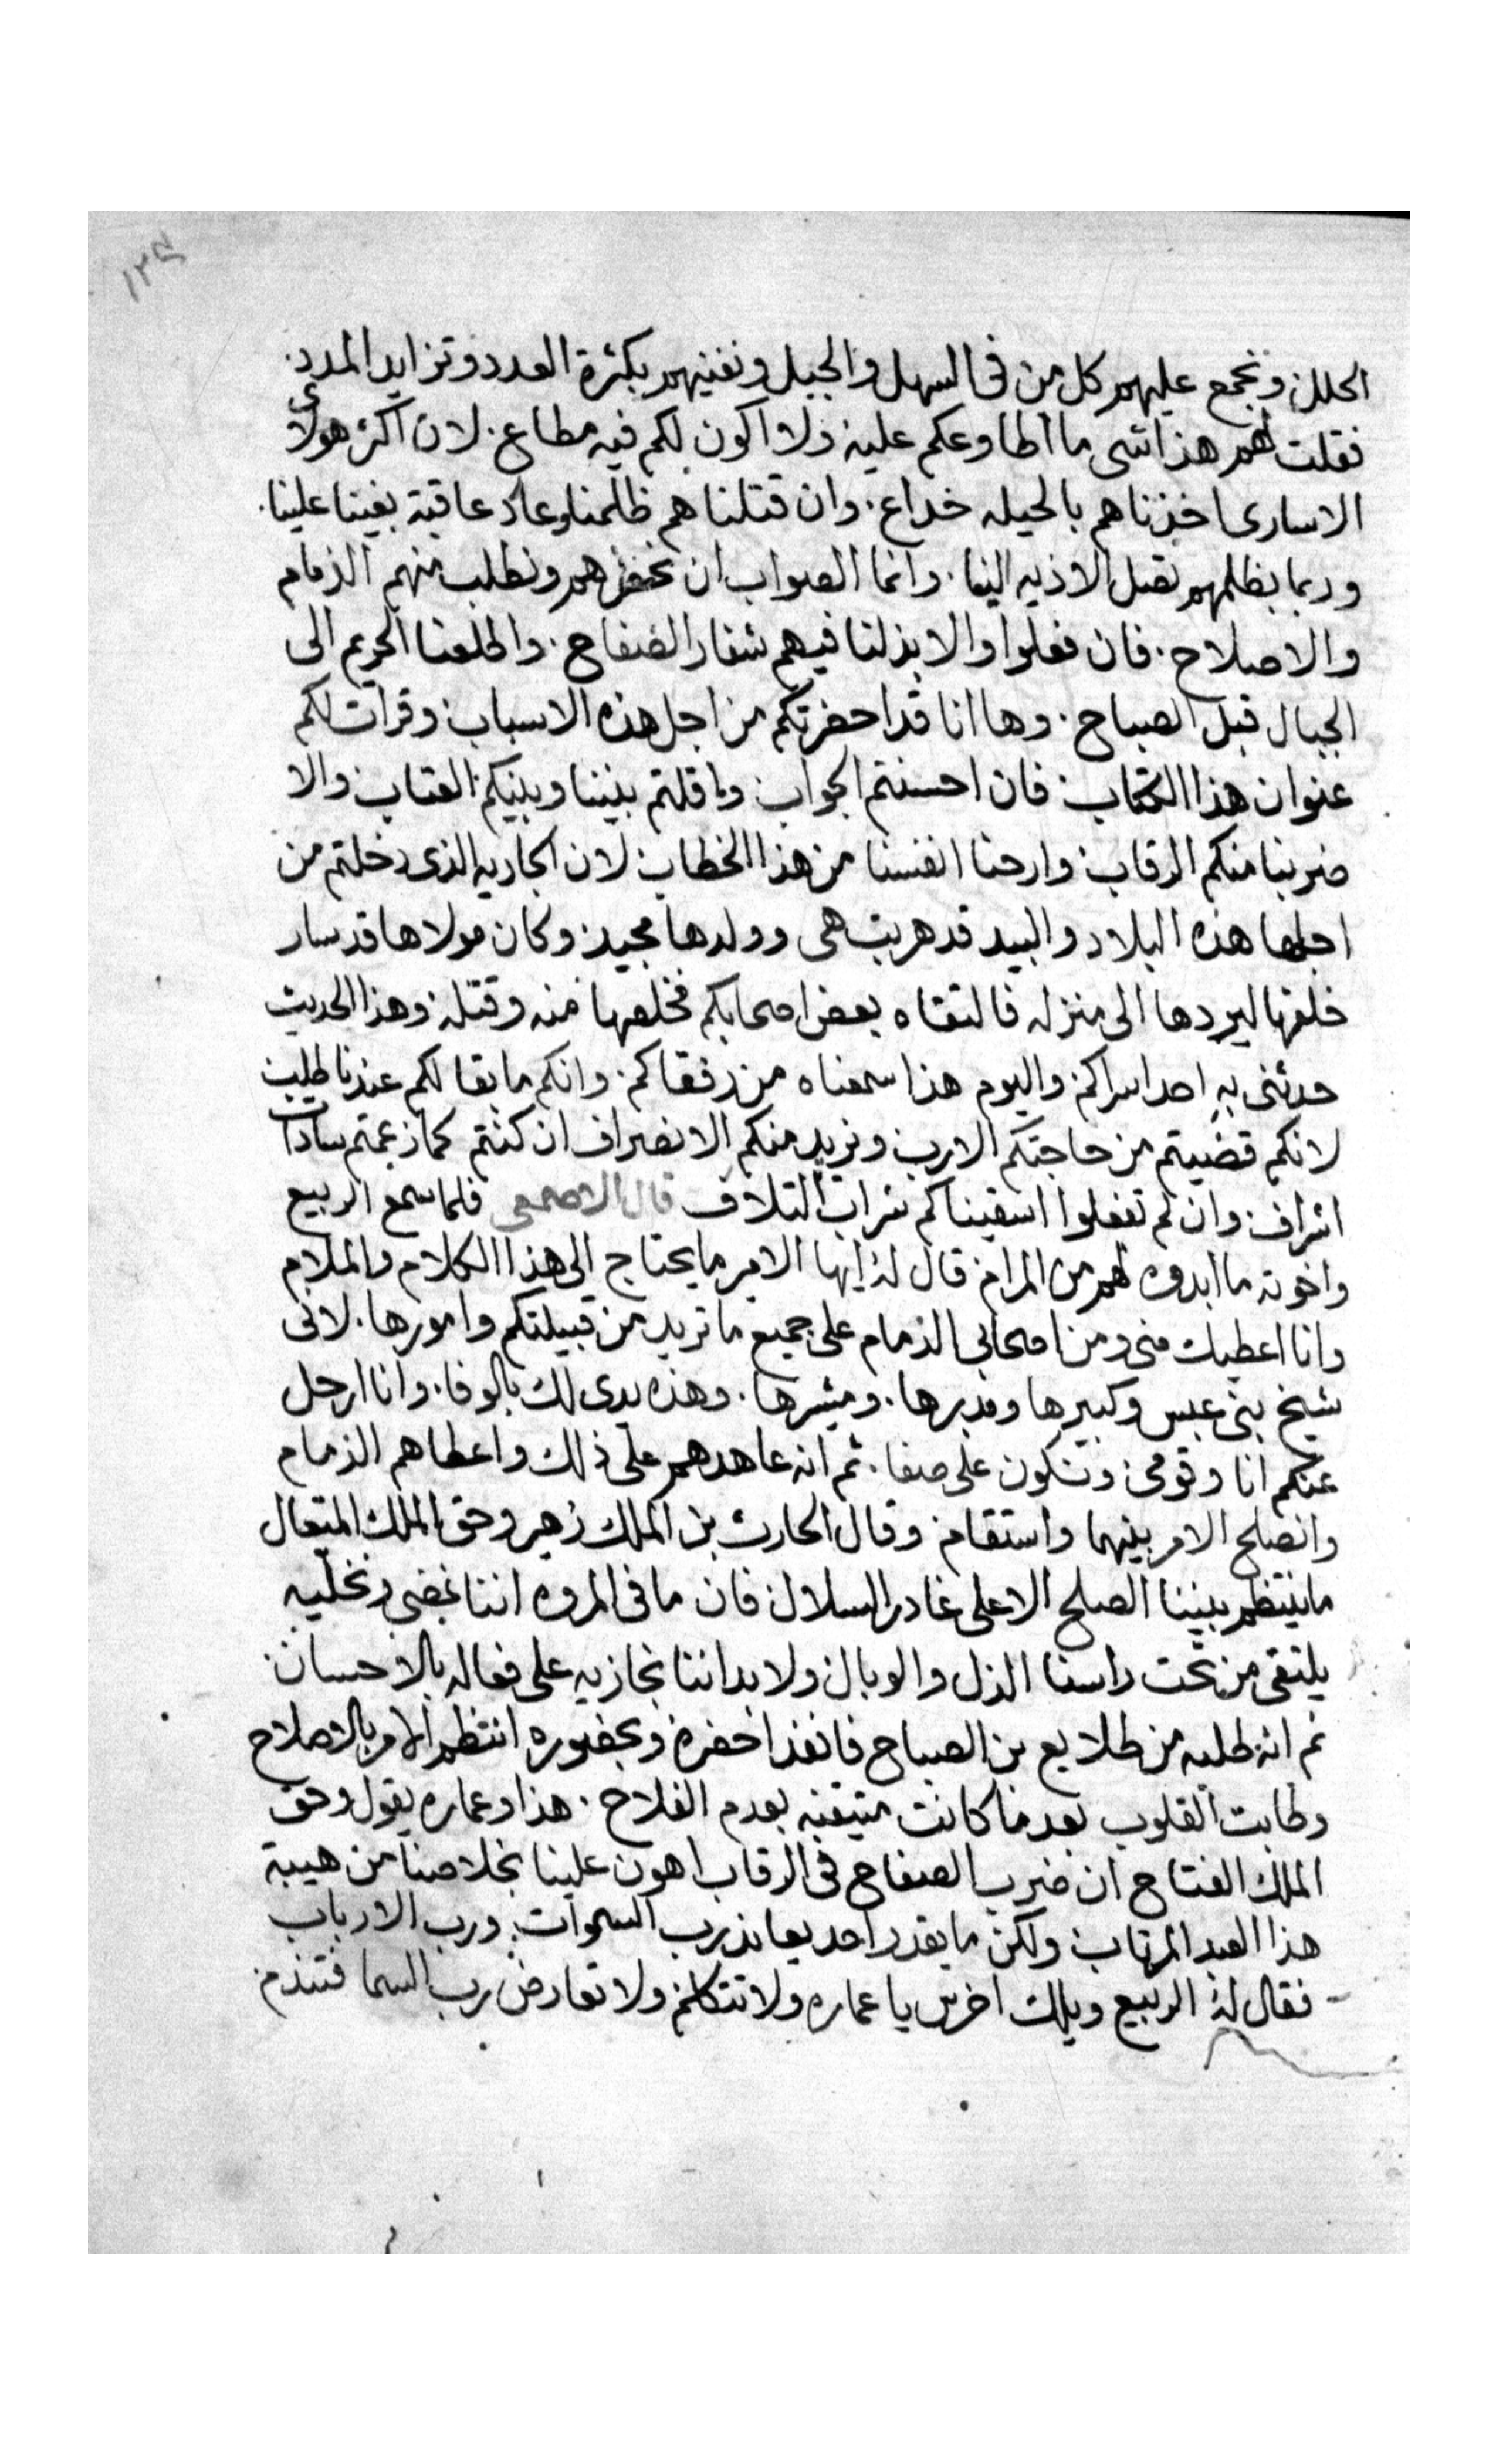 ١٣٤
الحلل ونجمع عليهم كل من في السهل والجبل ونفنيهم بكثرة العدد وتزايد المدد.
فقلت لهم هذا شي ما اطاوعكم عليه ولا اكون لكم فيه مطاع. لان اكثر هولاي
الاسارى اخذناهم بالحيله خداع. وان قتلناهم ظلمنا وعاد عاقبة بغينا علينا.
وربما بظلمهم تصل الاذيه الينا. وانما الصواب ان نحضرهم ونطلب منهم الذمام
والاصلاح. فان فعلوا والا بذلنا فيهم شفار الصفاح. واطلعنا الحريم الى
الجبال قبل الصباح. وها انا قد احضرتكم من اجل هذه الاسباب وقرات لكم
عنوان هذا الكتاب فان احسنتم الجواب واقلتم بيننا وبينكم العتاب والا
ضربنا منكم الرقاب وارحنا انفسنا من هذا الخطاب لان الجاريه الذى دخلتم من
اجلها هذه البلاد والبيد قد هربت هى وولدها مجيد وكان مولاها قد سار
خلفها ليردها الى منزله فالتقاه بعض اصحابكم فخلصها منه وقتله وهذا الحديث
حدثنى به احد اسراكم واليوم هذا سمعناه من رفقاكم. وانكم ما بقا لكم عندنا طلب
لانكم قضيتم من حاجتكم الارب ونريد منكم الانصراف ان كنتم كما زعمتم سادات
اشراف وان لم تفعلوا اسقيناكم شراب التلاف قال الاصمعى فلما سمع الربيع
واخوته ما ابدوه لهم من المرام قال له ايها الامير ما يحتاج الى هذا الكلام والملام
وانا اعطيك منى ومن اصحابى الذمام على جميع ما تريد من قبيلتكم وامورها. لانى
شيخ بنى عبس وكبيرها ومدبرها. ومشيرها. وهذه يدى لك بالوفا. وانا ارحل
عنكم انا وقومى ونكون على صفا. ثم انه عاهدهم على ذلك واعطاهم الذمام
وانصلح الامر بينهما واستقام وقال الحارث بن الملك زهير وحق الملك المتعال
ما ينتظم بيننا الصلح الا على غادر السلال فان ما فى المروه اننا نمضى ونخليه
يلتقى من تحت راسنا الذل والوبال ولا بد اننا نجازيه على فعاله بالاحسان
ثم انه طلبه من طلايع بن الصباح فانفذ احضره وبحضوره انتظم الامر بالاصلاح
وطابت القلوب بعدما كانت متيقنه بعدم الفلاح. هذا وعماره يقول وحق
الملك الفتاح ان ضرب الصفاح فى الرقاب اهون علينا بخلاصنا من هيبة
هذا العبد المرتاب ولكن ما يقدر احد يعاند رب السموات ورب الارباب
فقال له الربيع ويلك اخرس يا عماره ولا تتكلم ولا تعارض رب السما فتندم